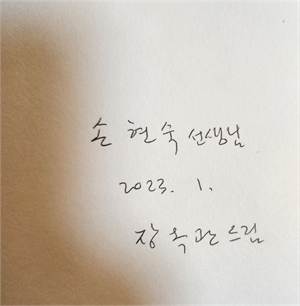 손현숙 선생님
2023. 1.
장옥관 드림